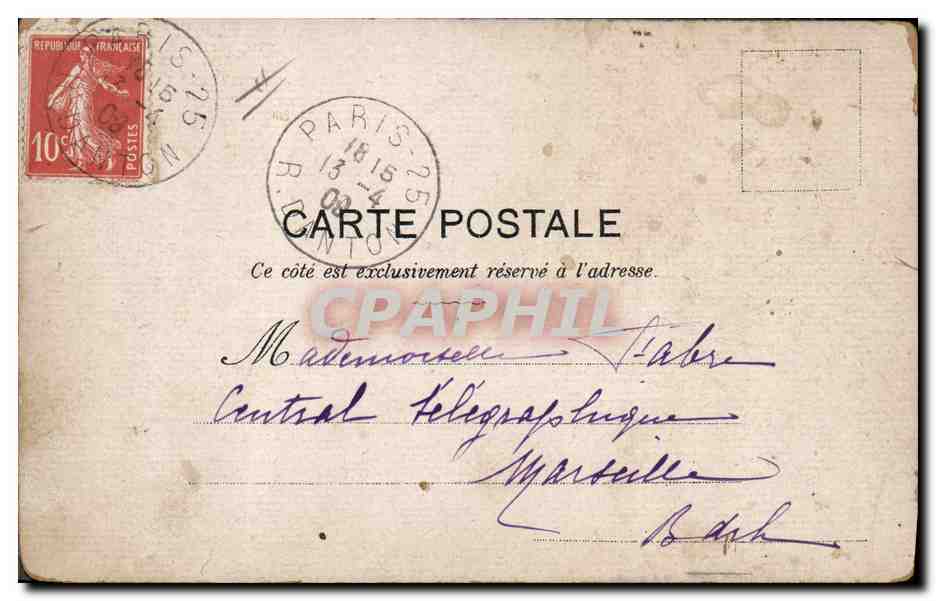 REPUBLIQUE FRANÇAISE
10c
POSTES
PARIS-25
PARIS-25
18 15
13 -4
R. DANTON
CARTE POSTALE
Ce côté est exclusivement réservé à l'adresse.
CPAPHIL
Mademoiselle Fabre
Central télégraphique
Marseille
B d R h